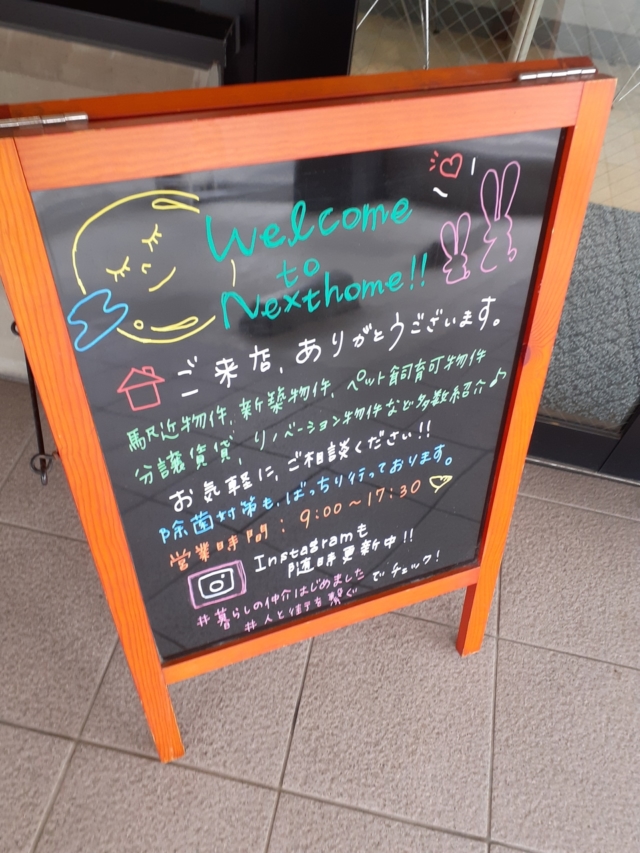 Welcome
to
Nexthome!!
ご来店、ありがとうございます。
駅近物件、新築物件、ペット飼育可物件
分譲賃貸、リノベーション物件など多数紹介♪
お気軽に、ご相談ください!!
除菌対策も、ばっちり行っております。
営業時間：9:00～17:30
Instagramも
随時更新中!!
#暮らしの仲介はじめました でチェック!
#人と街を繋ぐ